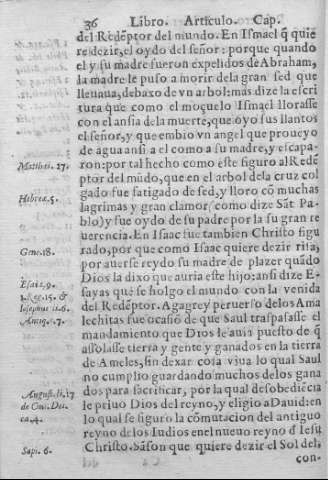 36 Libro. Artículo. Cap.
del Redẽptor del mundo. En Ismael q̃ quie
re dezir, el oydo del señor: porque quando
el y su madre fueron expelidos de Abraham,
la madre le puso a morir de la gran sed que
lleuaua, debaxo de vn arbol: mas dize la escri
tura que como el moçuelo Ismael llorasse
con el ansia de la muerte, que oyo sus llantos
el señor, y que embio vn angel que proueyo
de agua ansi a el como a su madre, y escapa-
Matthei. 27.
ron: por tal hecho como este figuro al Redẽ
ptor del mũdo, que en el arbol de la cruz col
gado fue fatigado de sed, y lloro cõ muchas
Hebreæ. 5.
lagrimas y gran clamor (como dize Sãt Pa
blo) y fue oydo de su padre por la su gran re
uerencia. En Isaac fue tambien Christo figu
Gene. 18.
rado, por que como Isaac quiere dezir risa,
por auerse reydo su madre de plazer quãdo
Dios la dixo que auria este hijo: ansi dize E-
Esaiæ. 9.
sayas què se holgo el mundo con la venida
1. Reg. 15. &
del Redẽptor. Agagrey peruerso de los Ama
Iosephus li. 6.
lechitas fue ocasiõ de que Saul traspasasse el
Antiq. c. 7.
mandamiento que Dios le auia puesto de q̃
assolasse tierra y gente y ganados en la tierra
de Ameles, sin dexar cosa viua lo qual Saul
no cumplio guardando muchos de los gana
August. li. 17
dos para sacrificar, por la qual desobediẽcia
de Ciui. Dei.
le priuo Dios del reyno, y eligio a Dauid: en
ca. 4.
lo qual se figuro la cõmutacion del antiguo
reyno de los Iudios en el nueuo reyno ď Iesu
Sapi. 6.
Christo. Sãson que quiere dezir el Sol del,
con-